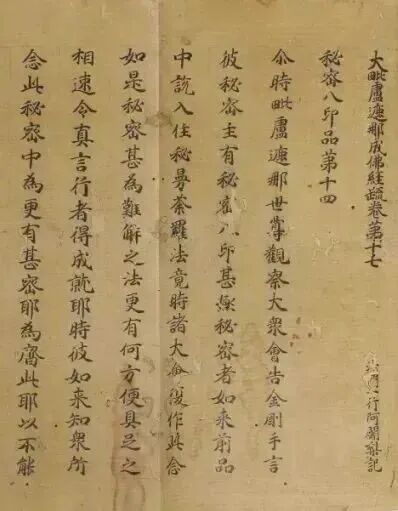 大毗盧遮那成佛經疏卷第十七
沙門一行阿闍梨記
秘密八印品第十四
尒時毗盧遮那世尊觀察大衆會告金剛手言
彼秘密主有秘密八印甚深秘密者如来前品
中說入住秘曼荼羅法竟時諸大會復作此念
如是秘密甚為難解之法更有何方便具足之
相速令真言行者得成就耶時彼如来知衆所
念此秘密中為更有甚密耶為齊此耶以不能